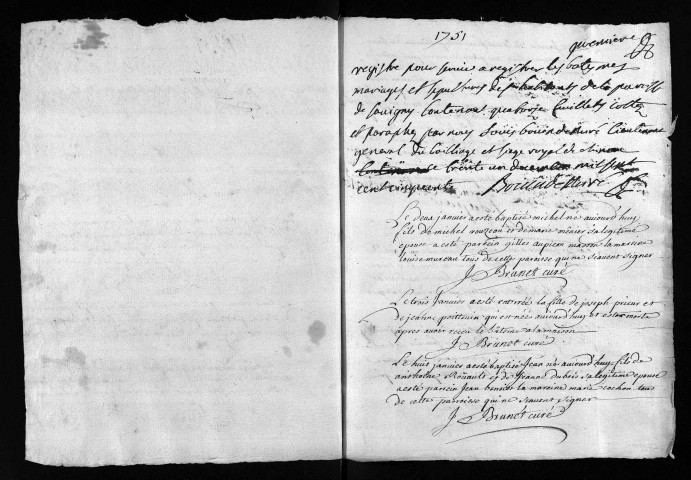 1751
premiere
registre pour servir a registrer les batesmes
mariages et sepultures des habitants de la paroisse
de Savigny Contenant quatorze feuillets cottez
et paraphez par nous Louis Lieutenant
general du bailliage et siege royal de chinon
le trente un decembre mil sept
cent cinquante
Le deux janvier a esté baptisé michel né aujourd'huy
fils de michel et de marie sa legitime
epouse a eté parrein gilles la marreine
Louise mureau tous de cette paroisse qui ne sçavent signer
J Brunet curé
Le trois Janvier a esté enterrée la fille de joseph prieur et
de jeanne poitevin qui est née aujourd'huy et est morte
apres avoir receu le batême a la maison
J Brunet curé
Le huit janvier a esté baptisé Jean né aujourd'huy fils de
anthoine et de Jeanne dubois sa legitime epouse
a esté parrein Jean la mareine marie cochon tous
de cette parroisse qui ne scavent signer
J Brunet curé